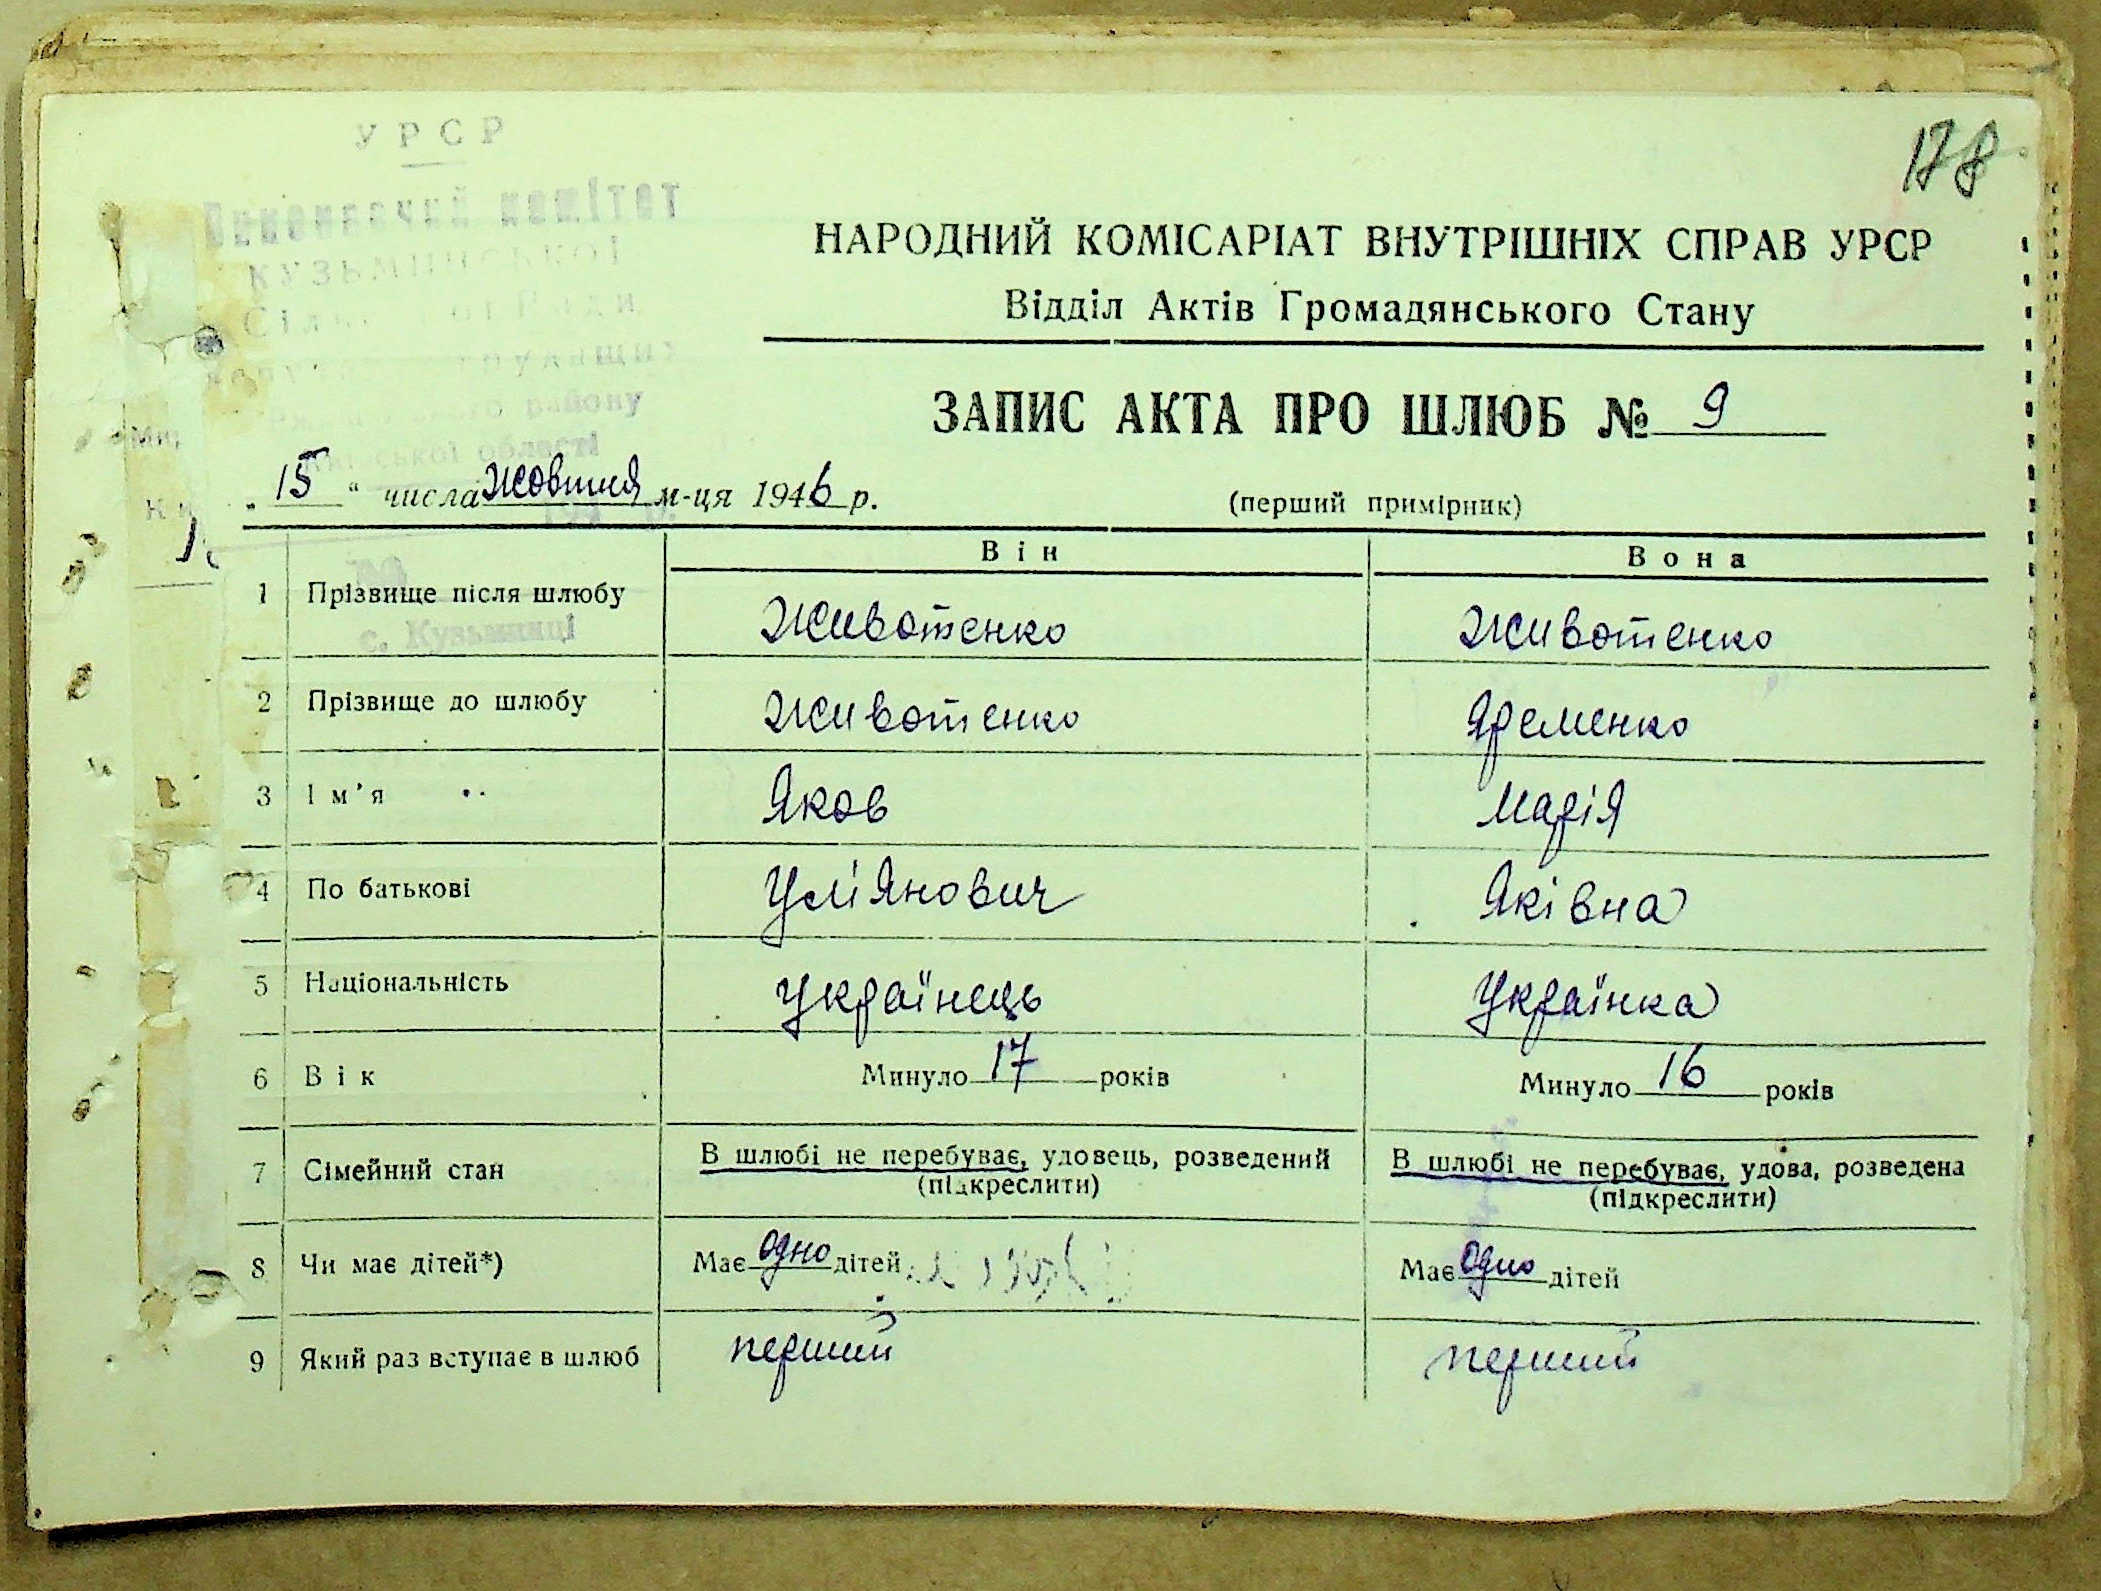 178
УРСР
Виконавчий комітет
КУЗЬМИНСЬКОЇ
району
області
с. Кузьминці
НАРОДНИЙ КОМІСАРІАТ ВНУТРІШНІХ СПРАВ УРСР
Відділ Актів Громадянського Стану
ЗАПИС АКТА ПРО ШЛЮБ № 9
„15“ числа жовтня м-ця 1946 р.
(перший примірник)
Він Вона
1 Прізвище після шлюбу Животенко Животенко
2 Прізвище до шлюбу Животенко Яременко
3 Ім’я Яков Марія
4 По батькові Улiянович Яківна
5 Національність українець Українка
6 Вік Минуло 17 років Минуло 16 років
7 Сімейний стан В шлюбі не перебуває, удовець, розведений В шлюбі не перебуває, удова, розведена
(підкреслити) (підкреслити)
8 Чи має дітей*) Має одно дітей Має одно дітей
9 Який раз вступає в шлюб перший перший